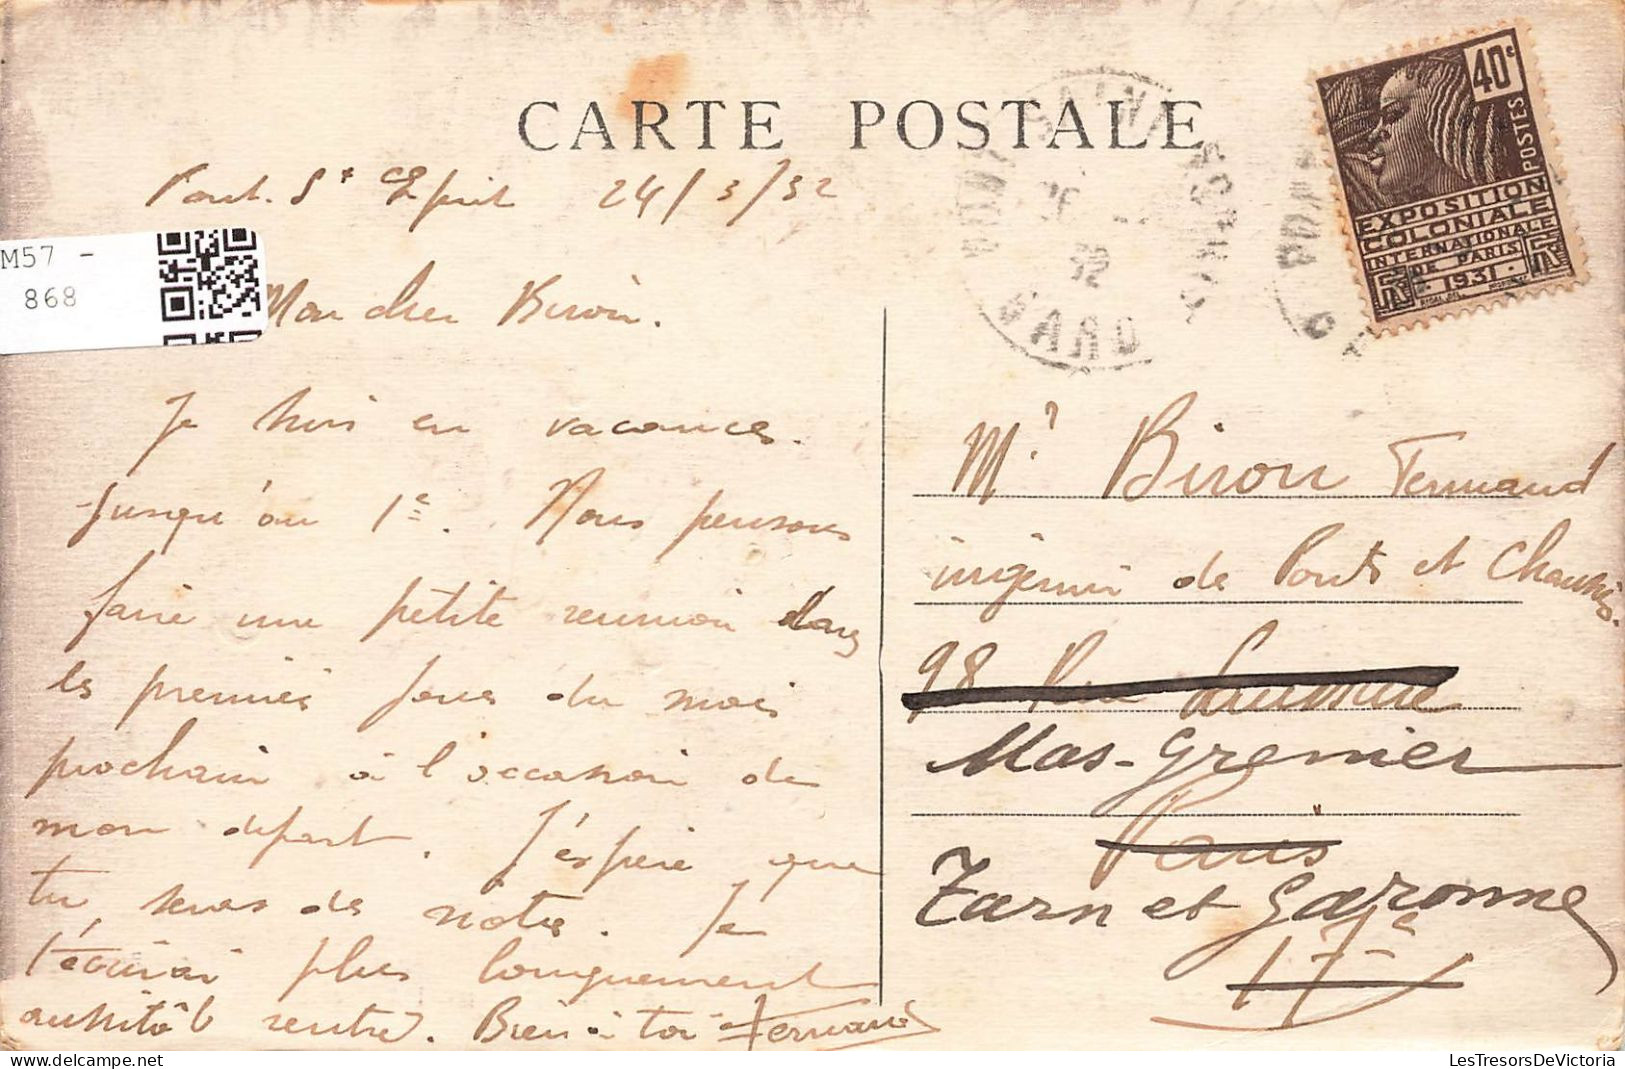 CARTE POSTALE
Pont. St Esprit 24/3/32
M57 -
868
Mon cher Biron.
Je suis en vacances
jusqu'au 1e. Nous pensons
faire une petite reunion dans
les premiers jours du mois
prochain à l'occasion de
mon départ. J'espère que
tu seras des notres. Je
t'écrirai plus longuement
aussitôt rentré. Bien à toi Fernand
40c
POSTES
EXPOSITION
COLONIALE
INTERNATIONALE
DE PARIS
1931
PONT SAINT ESPRIT
32
GARD
Mr Biron Fernand
ingénieur des Ponts et Chaussées.
98 Rue
Mas-Grenier
Paris
Tarn et Garonne
17e
LesTresorsDeVictoria
delcampe.net